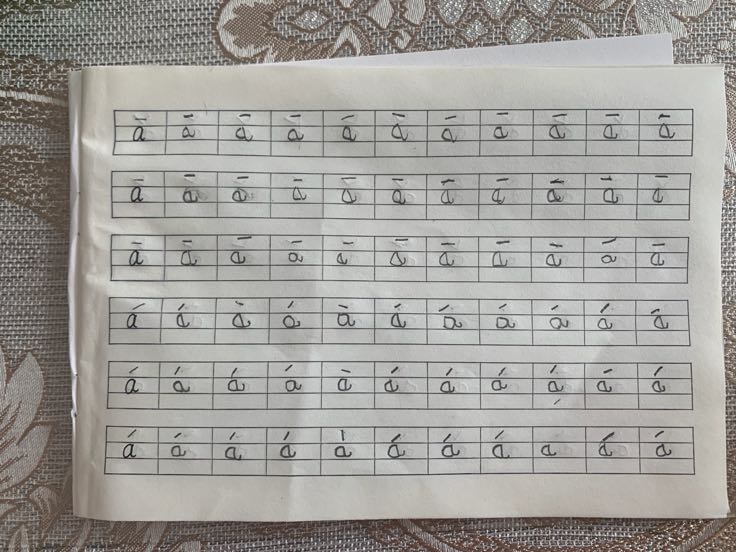 ā ā ā ā ā ā ā ā ā ā ā
ā ā ā ā ā ā ā ā ā ā ā
ā ā ā ā ā ā ā ā ā ā ā
á á á á á á á á á á á
á á á á á á á á á á á
á á á á á á á á a á á